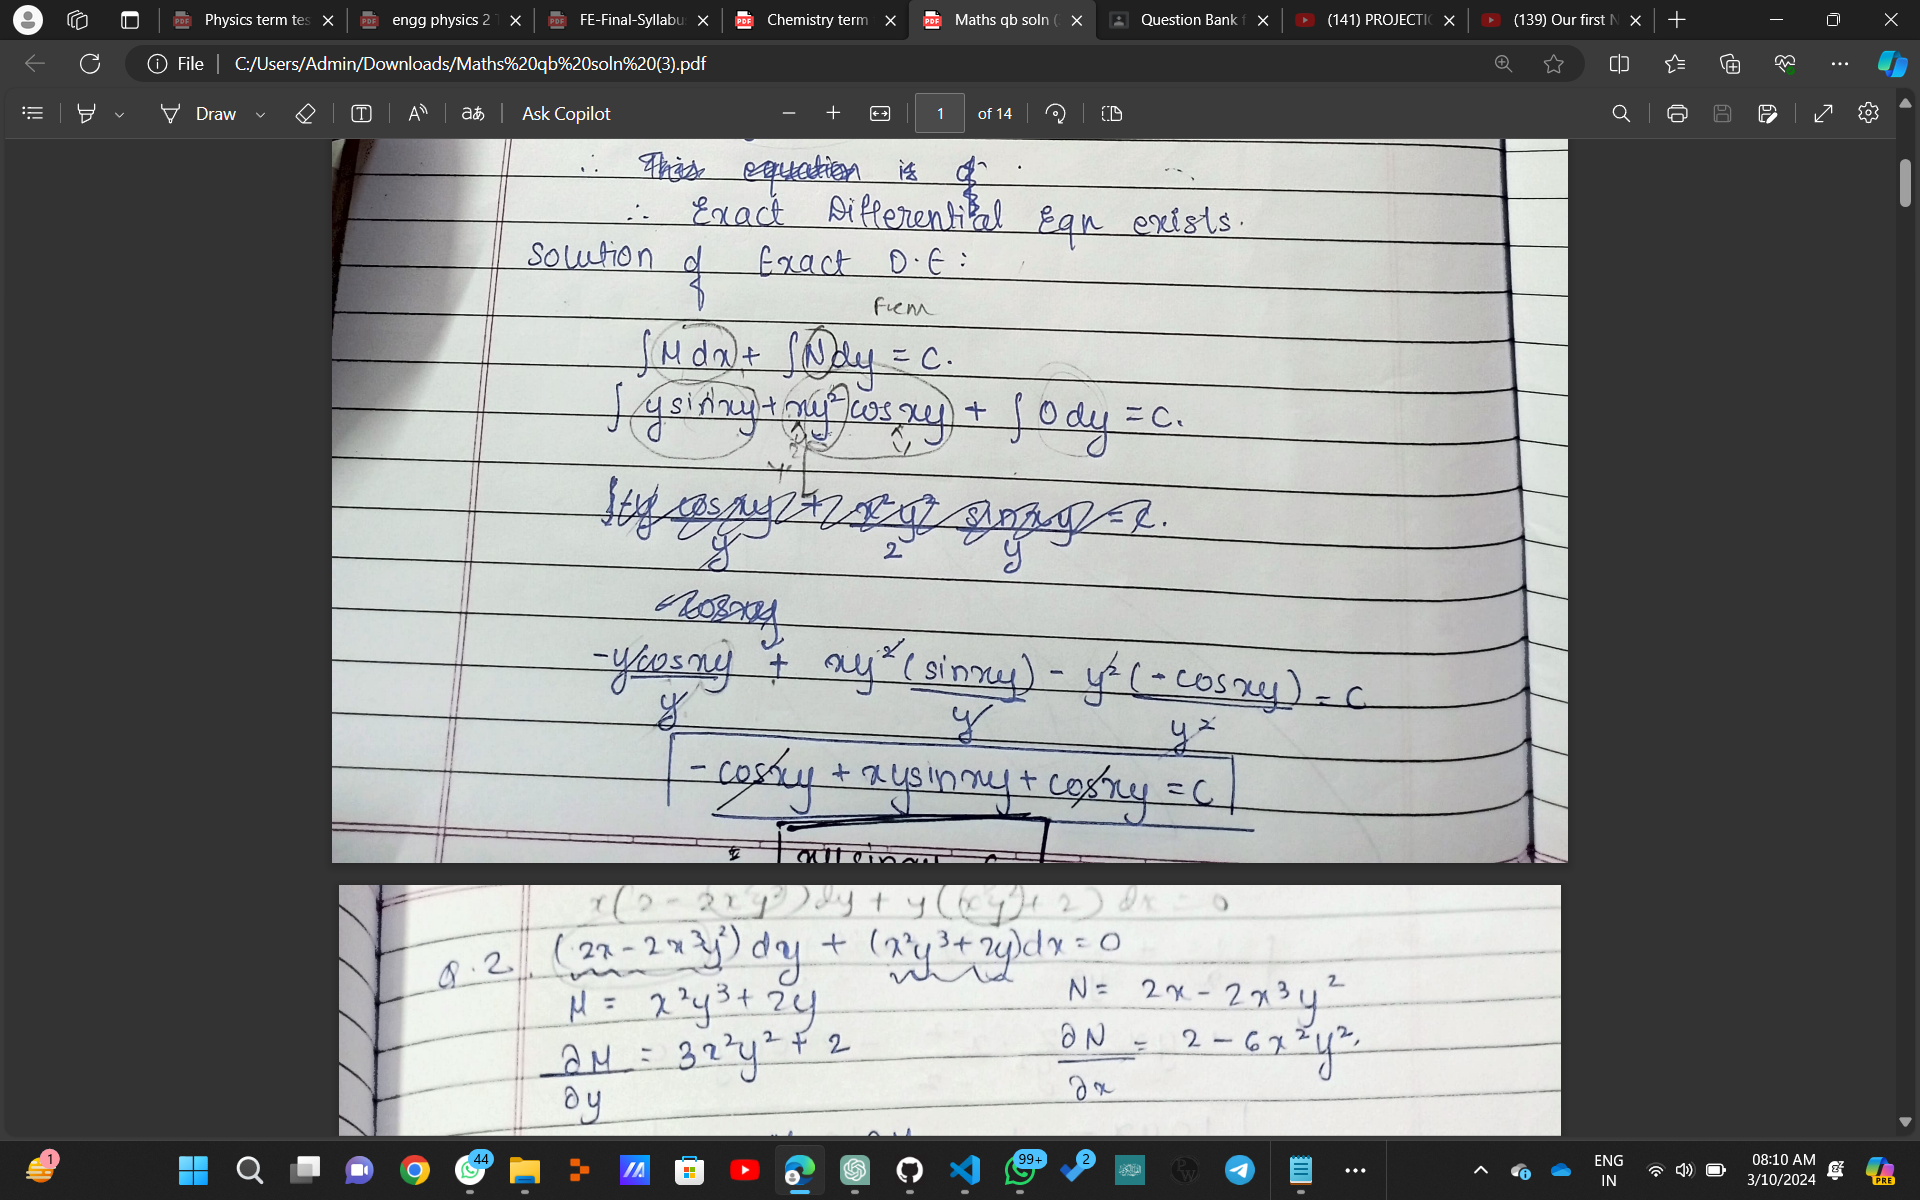 Physics term tes
engg physics 2 T
FE-Final-Syllabu
Chemistry term
Maths qb soln (
Question Bank f
(141) PROJECTI
(139) Our first N
File
C:/Users/Admin/Downloads/Maths%20qb%20soln%20(3).pdf
Draw
aあ
Ask Copilot
1 of 14
∴ This equation is of
∴ Exact Differential Eqn exists.
Solution of Exact D.E :
∫M dx + ∫N dy = C.
∫ y sinxy + xy² cosxy + ∫ 0 dy = C.
∫-y cosxy/y + x²y²/2 sinxy/y = C.
-cosxy
-y cosxy/y + xy² (sinxy)/y - y² (-cosxy)/y² = C
- cosxy + xysinxy + cosxy = C
Q.2. (2x - 2x³y²) dy + (x²y³ + 2y)dx = 0
M = x²y³ + 2y N = 2x - 2x³y²
∂M/∂y = 3x²y² + 2 ∂N/∂x = 2 - 6x²y².
1
44
99+
2
ENG
IN
08:10 AM
3/10/2024
PRE